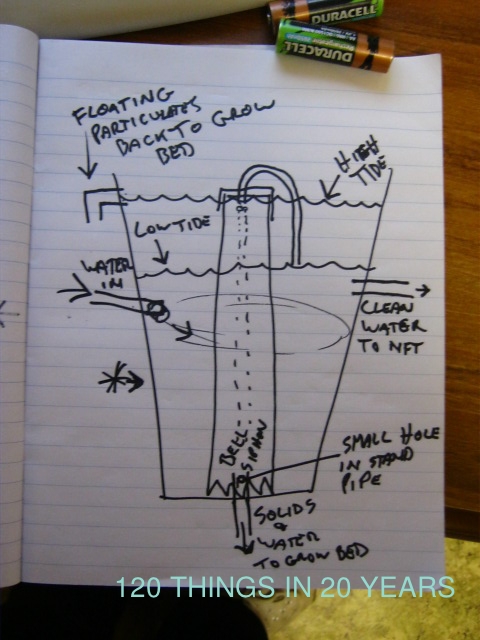 DURACELL
DURACELL
FLOATING
PARTICULATES
BACK TO GROW
BED
HIGH
TIDE
LOW TIDE
WATER
IN
CLEAN
WATER
TO NFT
BELL
SIPHON
SMALL HOLE
IN STAND
PIPE
SOLIDS
&
WATER
TO GROW BED
120 THINGS IN 20 YEARS